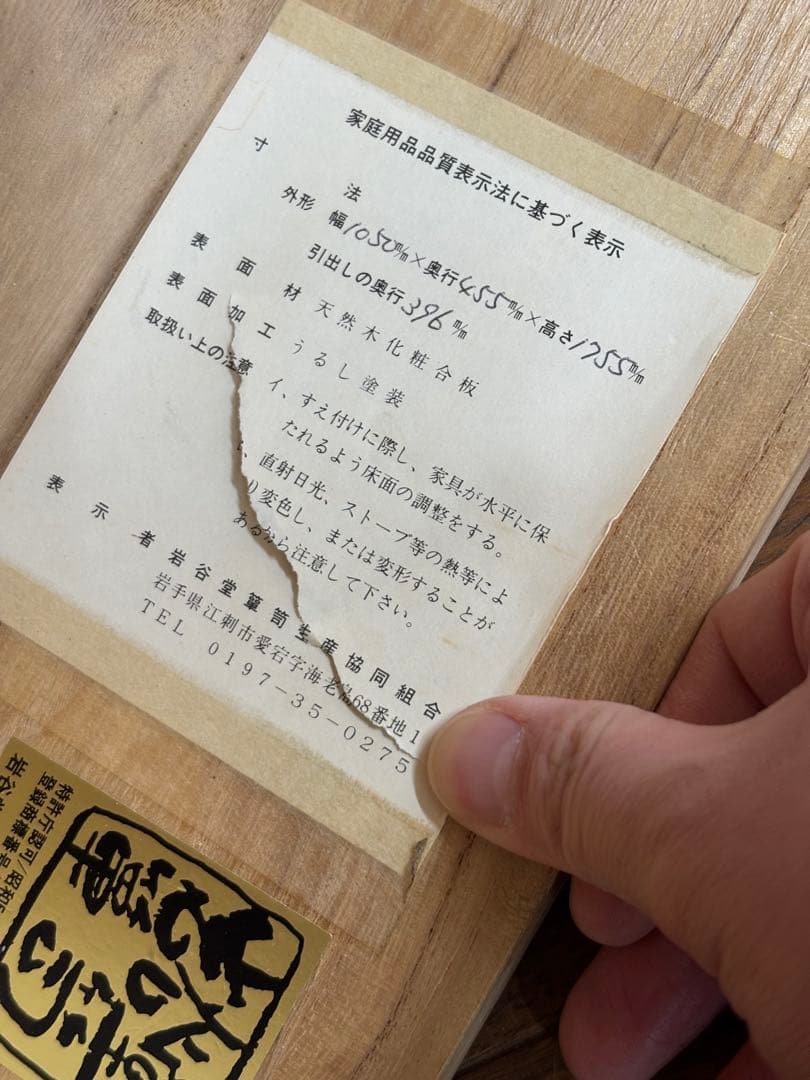 家庭用品品質表示法に基づく表示
寸法
外形 幅1050m/m×奥行455m/m×高さ1755m/m
引出しの奥行396m/m
表面材 天然木化粧合板
表面加工 うるし塗装
取扱い上の注意 イ、すえ付けに際し、家具が水平に保
たれるよう床面の調整をする。
、直射日光、ストーブ等の熱等によ
り変色し、または変形することが
あるから注意して下さい。
表示者 岩谷堂簞笥生産協同組合
岩手県江刺市愛宕字海老島68番地1
TEL 0197-35-0275
特許庁認可/昭和
登録商標番号
岩谷